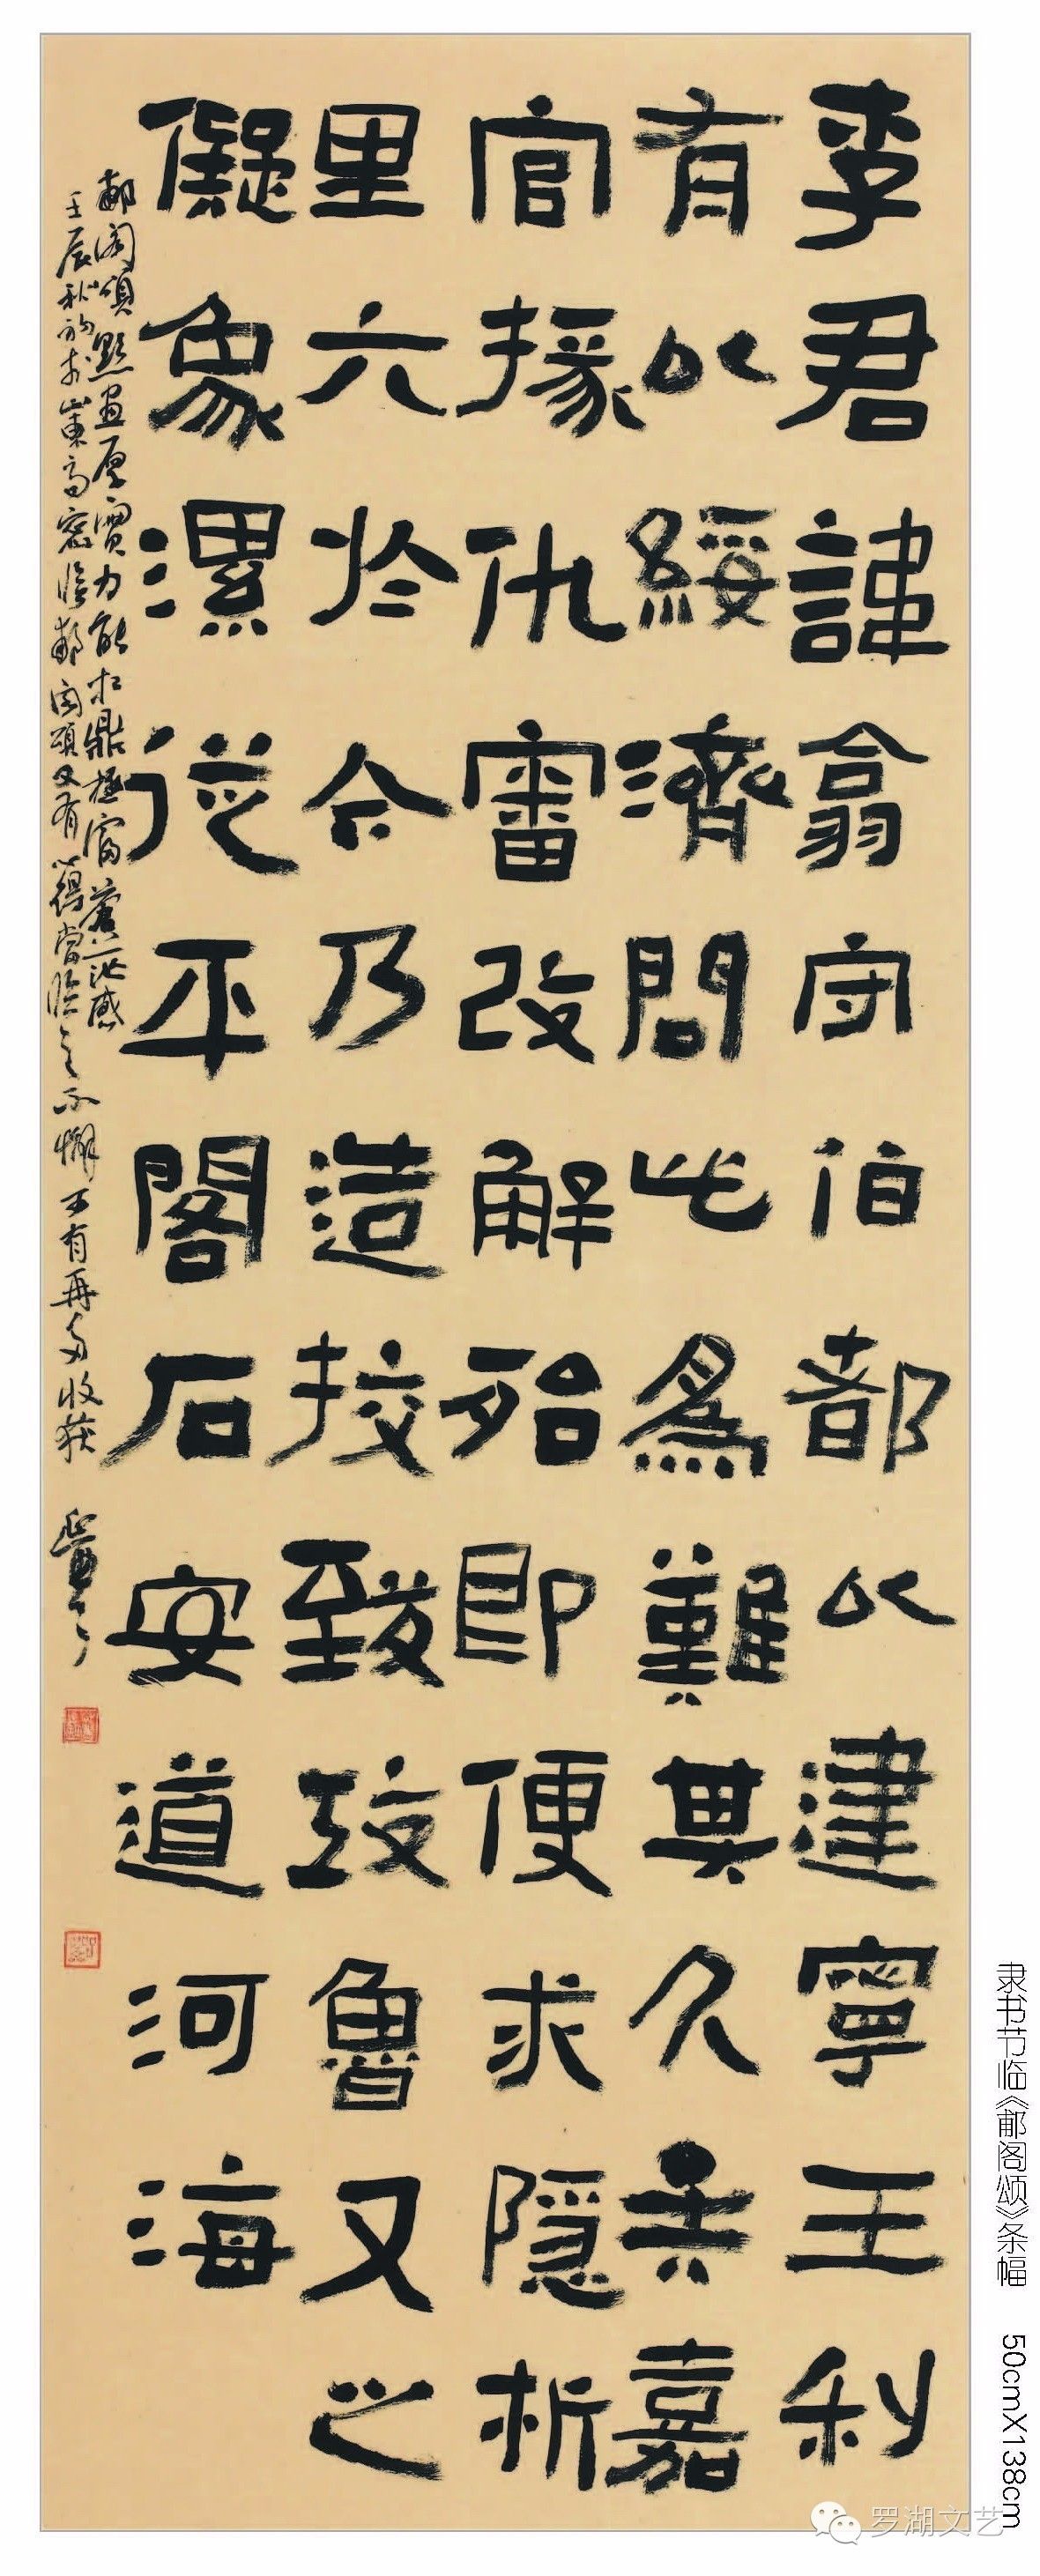 李君諱翕守伯都以建寧王利
有以綏濟問此為難其久矣嘉
官掾仇審改解殆即便求隱析
里六於今乃造挍致攻魯又之
儗象漯従平閣石安道河海
郙閣頌點畫厚實力能扛鼎極富蒼茫感
壬辰秋初於嵩高窗臨郙閣頌又有心得常臨之不懈可有再多收获
隶书节临《郙阁颂》条幅 50cmX138cm
罗湖文艺